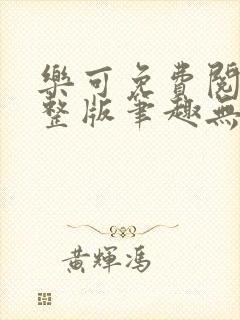 樂可免費閱
整版筆趣無
黃輝馮